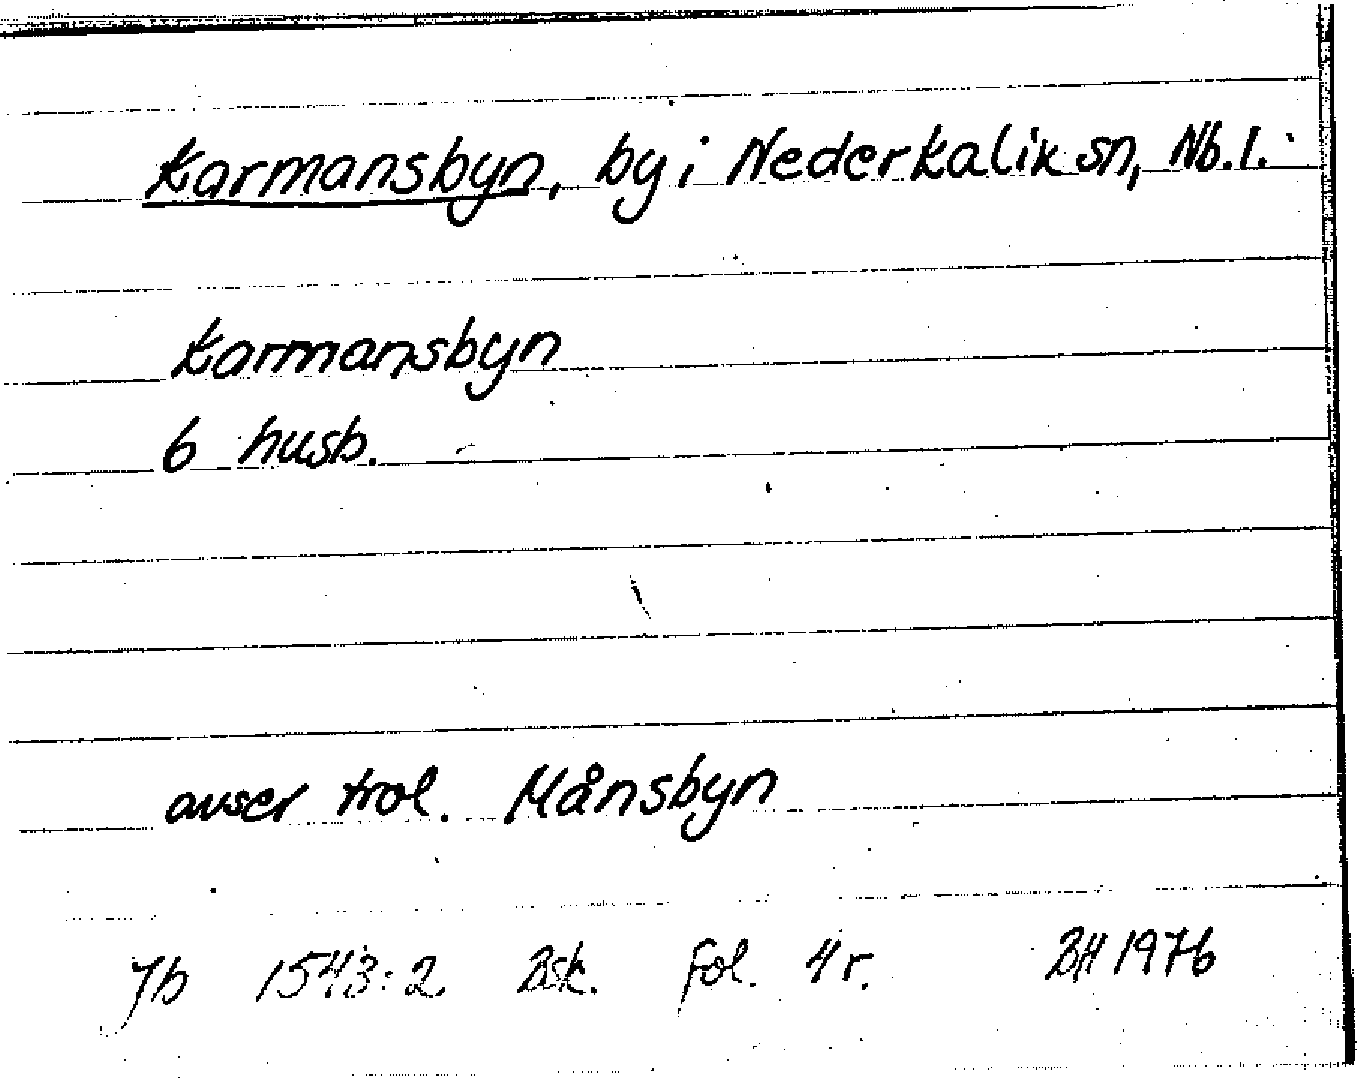 Karmansbyn, by i Nederkalix sn, Nb.l.
Karmansbyn
6 husb.
avser trol. Månsbyn
Jb 1543:2 Bsk. fol. 4 r. BH 1976